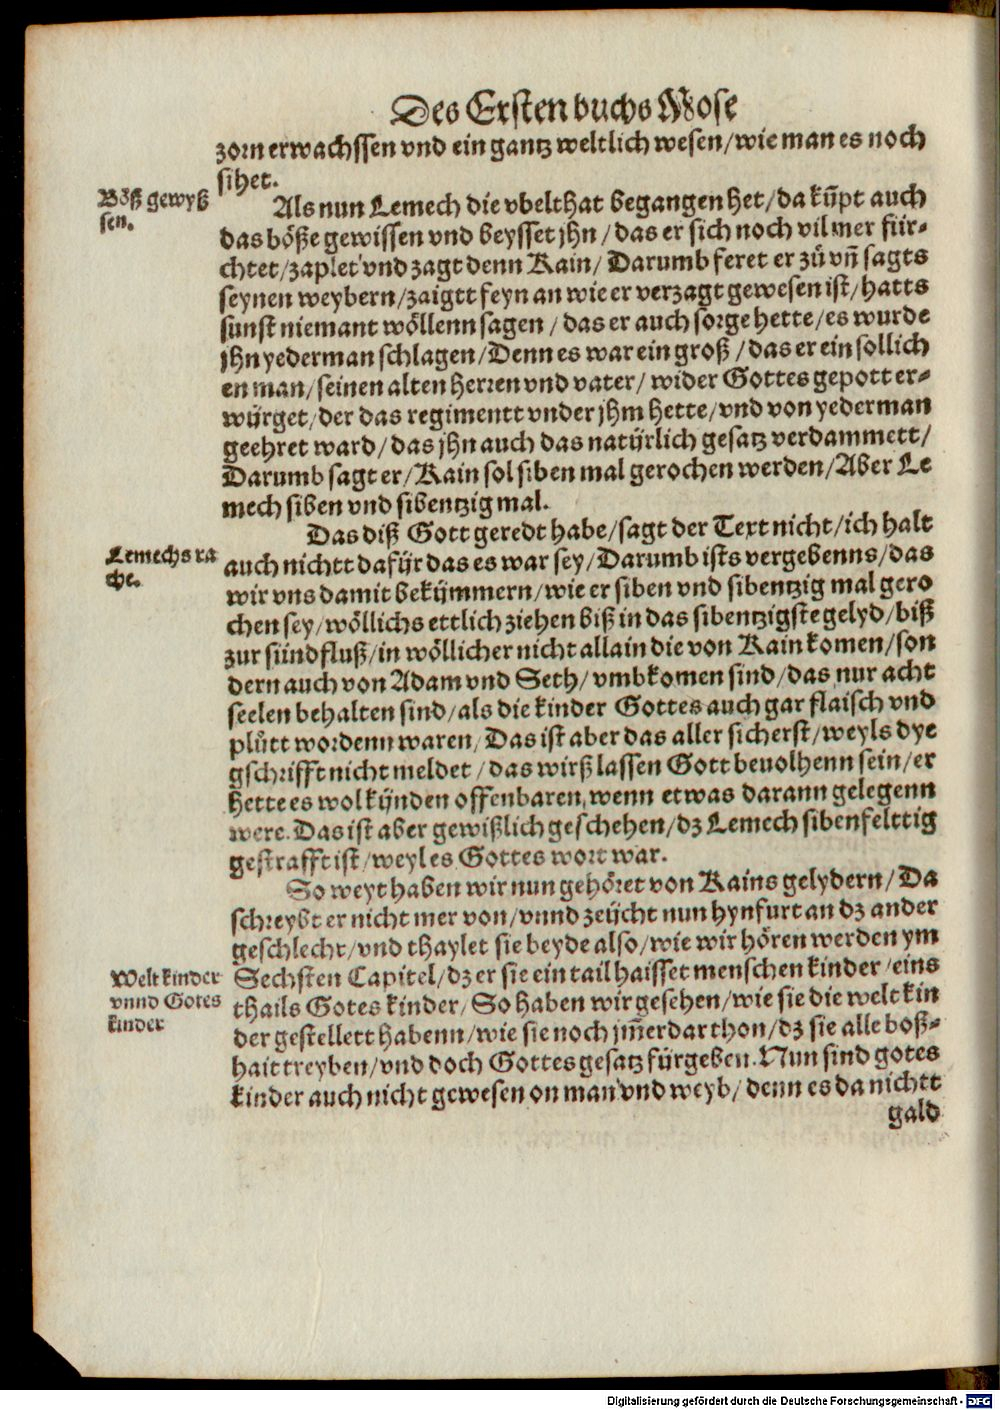 Des Ersten buchs Mose
zorn erwachssen vnd ein gantz weltlich wesen/wie man es noch
sihet.
Böß gewyß
sen.
Als nun Lemech die vbelthat begangen het/da kūpt auch
das böße gewissen vnd beysset jhn/das er sich noch vil mer für-
chtet/zaplet vnd zagt denn Kain/Darumb feret er zů vn̄ sagts
seynen weybern/zaigtt feyn an wie er verzagt gewesen ist/hatts
sunst niemant wöllenn sagen/das er auch sorge hette/es wurde
jhn yederman schlagen/Denn es war ein groß/das er ein sollich
en man/seinen alten herren vnd vater/wider Gottes gepott er-
würget/der das regimentt vnder jhm hette/vnd von yederman
geehret ward/das jhn auch das natürlich gesatz verdammett/
Darumb sagt er/Kain sol siben mal gerochen werden/Aber Le
mech siben vnd sibentzig mal.
Lemechs ra
che.
Das diß Gott geredt habe/sagt der Text nicht/ich halt
auch nichtt dafür das es war sey/Darumb ists vergebenns/das
wir vns damit bekümmern/wie er siben vnd sibentzig mal gero
chen sey/wöllichs ettlich ziehen biß in das sibentzigste gelyd/biß
zur sündfluß/in wöllicher nicht allain die von Kain komen/son
dern auch von Adam vnd Seth/vmbkomen sind/das nur acht
seelen behalten sind/als die kinder Gottes auch gar flaisch vnd
plůtt wordenn waren/Das ist aber das aller sicherst/weyls dye
gschrifft nicht meldet/das wirß lassen Gott beuolhenn sein/er
hette es wol künden offenbaren/wenn etwas darann gelegenn
were. Das ist aber gewißlich geschehen/dz Lemech sibenfelttig
gestrafft ist/weyl es Gottes wort war.
So weyt haben wir nun gehöret von Kains gelydern/Da
schreybt er nicht mer von/vnnd zeücht nun hynfurt an dz ander
geschlecht/vnd thaylet sie beyde also/wie wir hören werden ym
Welt kinder
vnnd Gotes
kinder
Sechsten Capitel/dz er sie ein tail haisset menschen kinder/eins
thails Gotes kinder/So haben wir gesehen/wie sie die welt kin
der gestellett habenn/wie sie noch jm̄erdar thon/dz sie alle boß-
hait treyben/vnd doch Gottes gesatz fürgeben. Nun sind gotes
kinder auch nicht gewesen on man vnd weyb/denn es da nichtt
gald
Digitalisierung gefördert durch die Deutsche Forschungsgemeinschaft - DFG